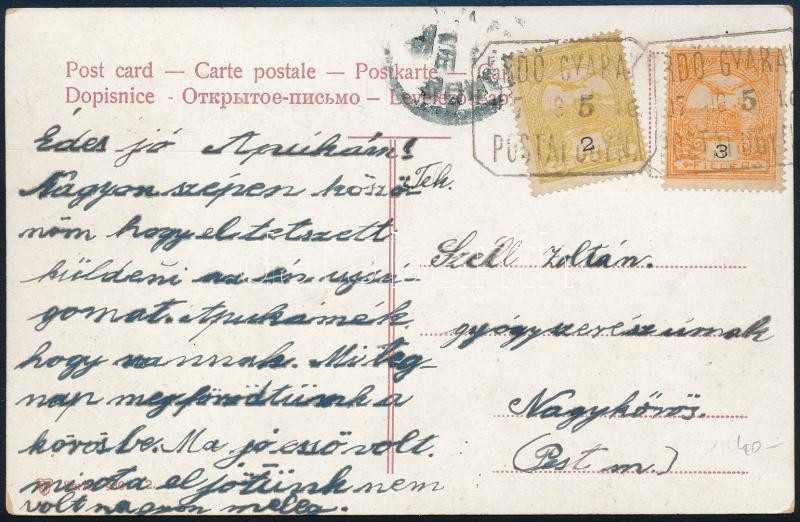 Post card — Carte postale — Postkarte —
Dopisnice - Открытое-письмо — Levelező-Lap
Édes jó Apukám!
Nagyon szépen köszö-
nöm hogy el tetszett
küldeni az én ujsá-
gomat. Apukámék
hogy vannak. Mi teg-
nap megfürödtünk a
körösbe. Ma jó esső volt.
miota el jötünk nem
volt nagyon meleg.
Tek.
Szell Zoltán.
gyógyszerész úrnak
Nagykőrös.
(Pest m.)
40-
ERDŐ GYARA
5 18
POSTAI ÜGYN
2
DŐ GYARA
5
3